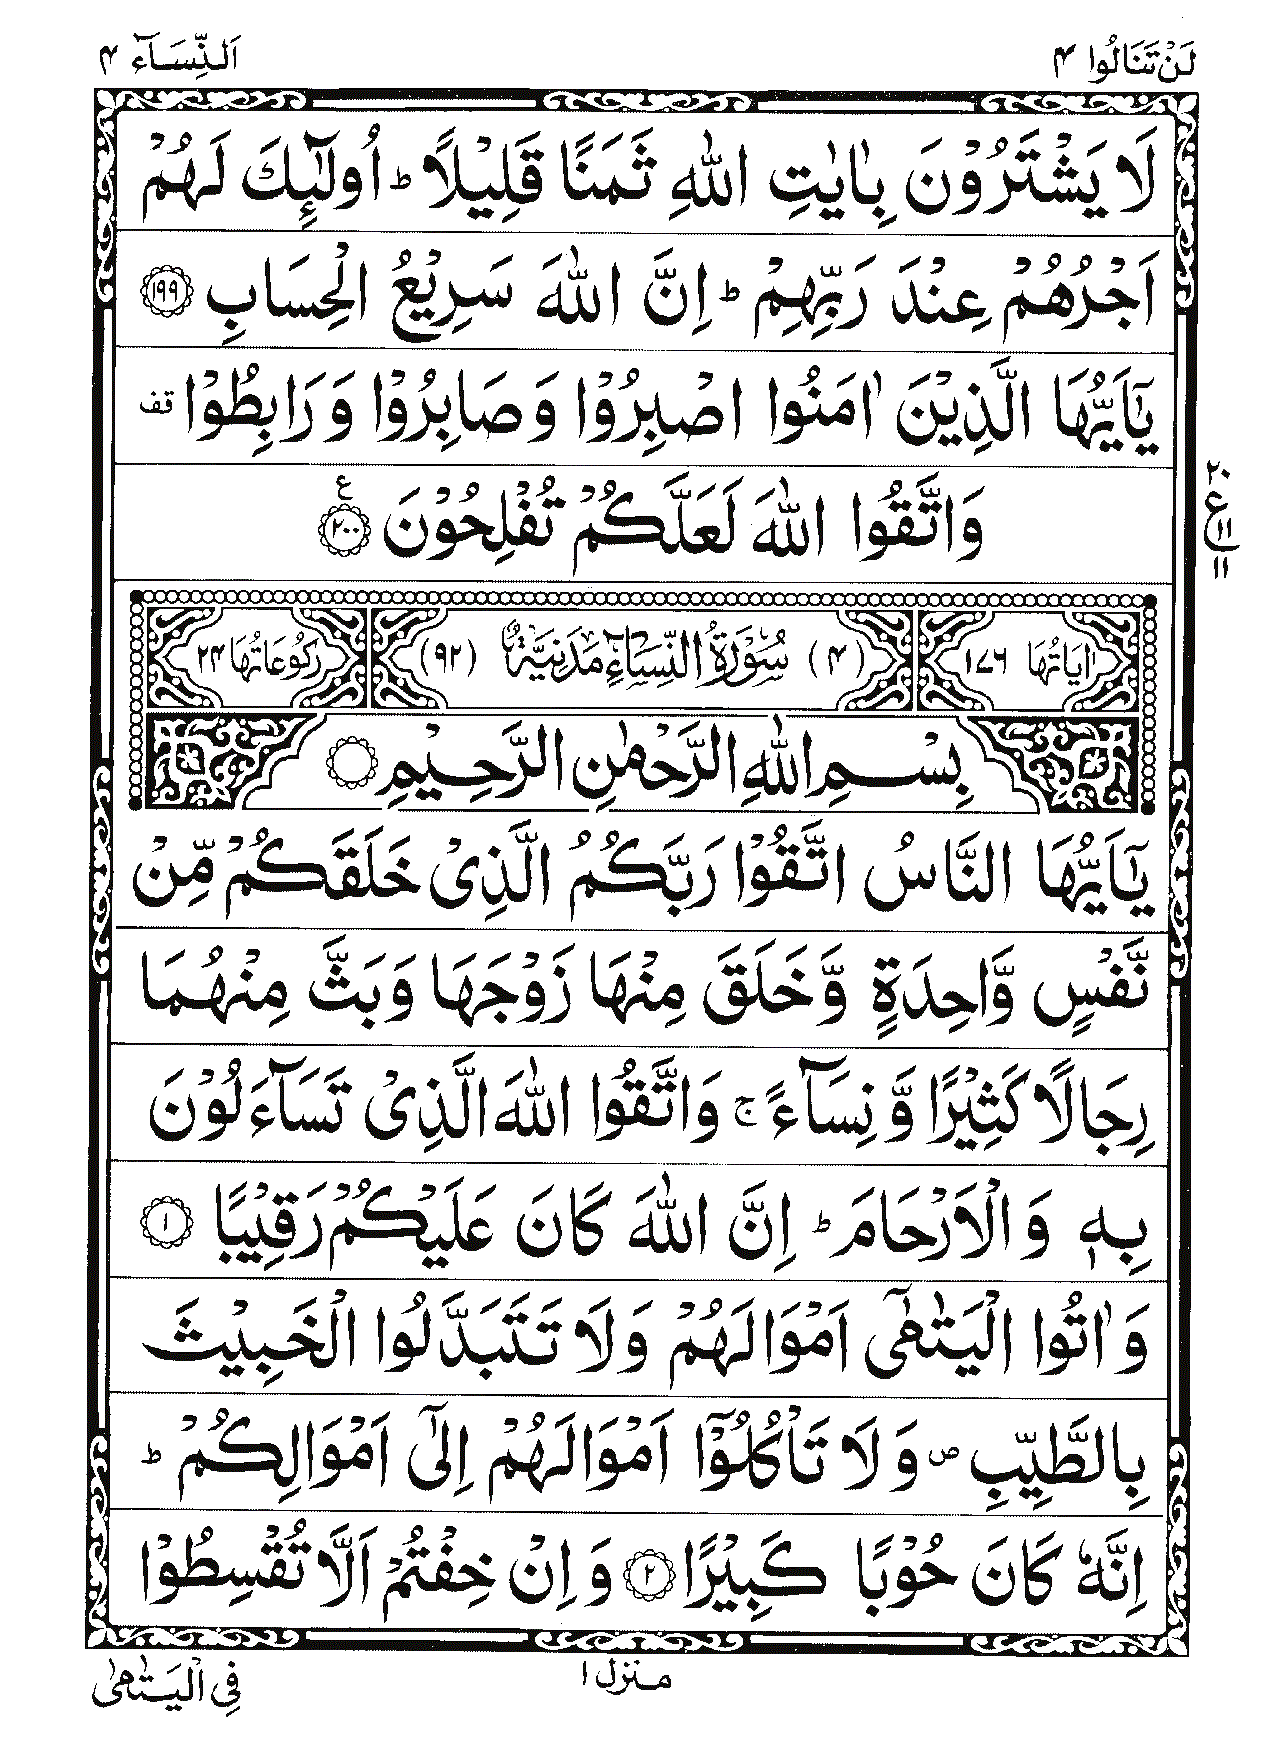 لَنْ تَنَالُوا ۴
اَلنِّسَآء ۴
لَا يَشْتَرُوْنَ بِاٰيٰتِ اللّٰهِ ثَمَنًا قَلِيْلًا ؕ اُولٰٓئِكَ لَهُمْ
اَجْرُهُمْ عِنْدَ رَبِّهِمْ ؕ اِنَّ اللّٰهَ سَرِيْعُ الْحِسَابِ ﴿۱۹۹﴾
يٰۤاَيُّهَا الَّذِيْنَ اٰمَنُوا اصْبِرُوْا وَصَابِرُوْا وَرَابِطُوْا قف
وَاتَّقُوا اللّٰهَ لَعَلَّكُمْ تُفْلِحُوْنَ ﴿۲۰۰﴾ ع
۲۰
ع
۱۱
۱۱
اٰيَاتُهَا ۱۷۶ (۴) سُوْرَةُ النِّسَآءِ مَدَنِيَّةٌ (۹۲) رُكُوْعَاتُهَا ۲۴
بِسْمِ اللّٰهِ الرَّحْمٰنِ الرَّحِيْمِ
يٰۤاَيُّهَا النَّاسُ اتَّقُوْا رَبَّكُمُ الَّذِىْ خَلَقَكُمْ مِّنْ
نَّفْسٍ وَّاحِدَةٍ وَّخَلَقَ مِنْهَا زَوْجَهَا وَبَثَّ مِنْهُمَا
رِجَالًا كَثِيْرًا وَّ نِسَآءً ۚ وَاتَّقُوا اللّٰهَ الَّذِىْ تَسَآءَلُوْنَ
بِهٖ وَالْاَرْحَامَ ؕ اِنَّ اللّٰهَ كَانَ عَلَيْكُمْ رَقِيْبًا ﴿۱﴾
وَاٰتُوا الْيَتٰمٰٓى اَمْوَالَهُمْ وَلَا تَتَبَدَّلُوا الْخَبِيْثَ
بِالطَّيِّبِ ص وَلَا تَاْكُلُوْۤا اَمْوَالَهُمْ اِلٰٓى اَمْوَالِكُمْ ؕ
اِنَّهٗ كَانَ حُوْبًا كَبِيْرًا ﴿۲﴾ وَاِنْ خِفْتُمْ اَلَّا تُقْسِطُوْا
منزل ۱
فِى الْيَتٰمٰى